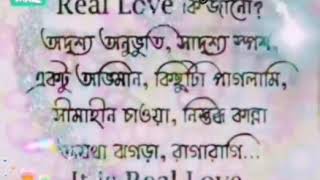 Real Love কি জানো?
অদৃশ্য অনুভুতি, সাদৃশ্য স্পর্শ,
একটু অভিমান, কিছুটা পাগলামি,
সীমাহীন চাওয়া, নিস্তব্ধ কান্না
অযথা ঝগড়া, রাগারাগি...
It is Real Love